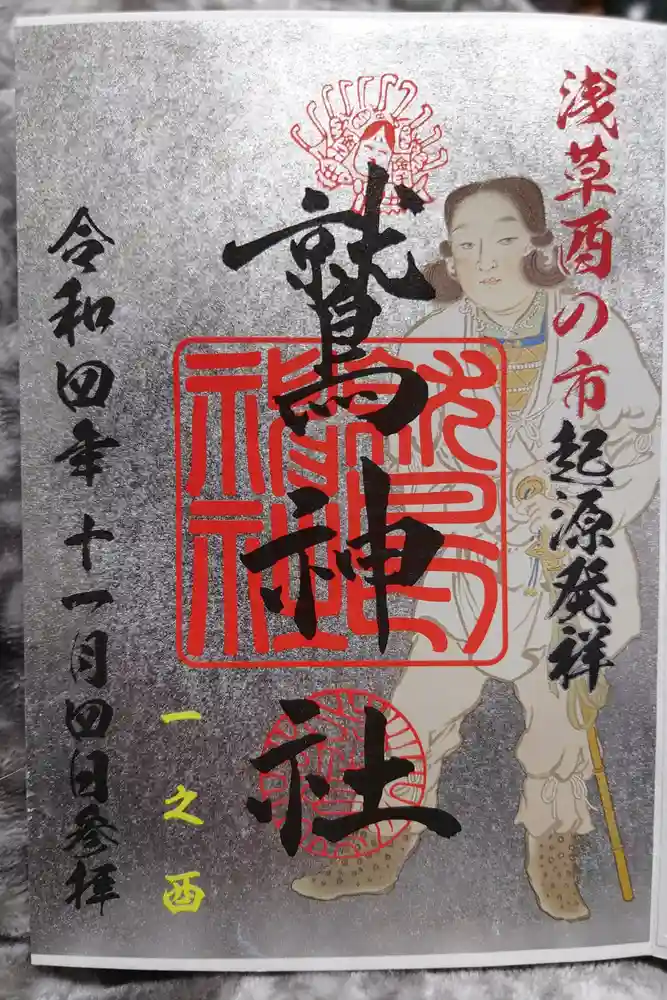 浅草酉の市起源発祥
鷲神社
一之酉
令和四年十一月四日参拝